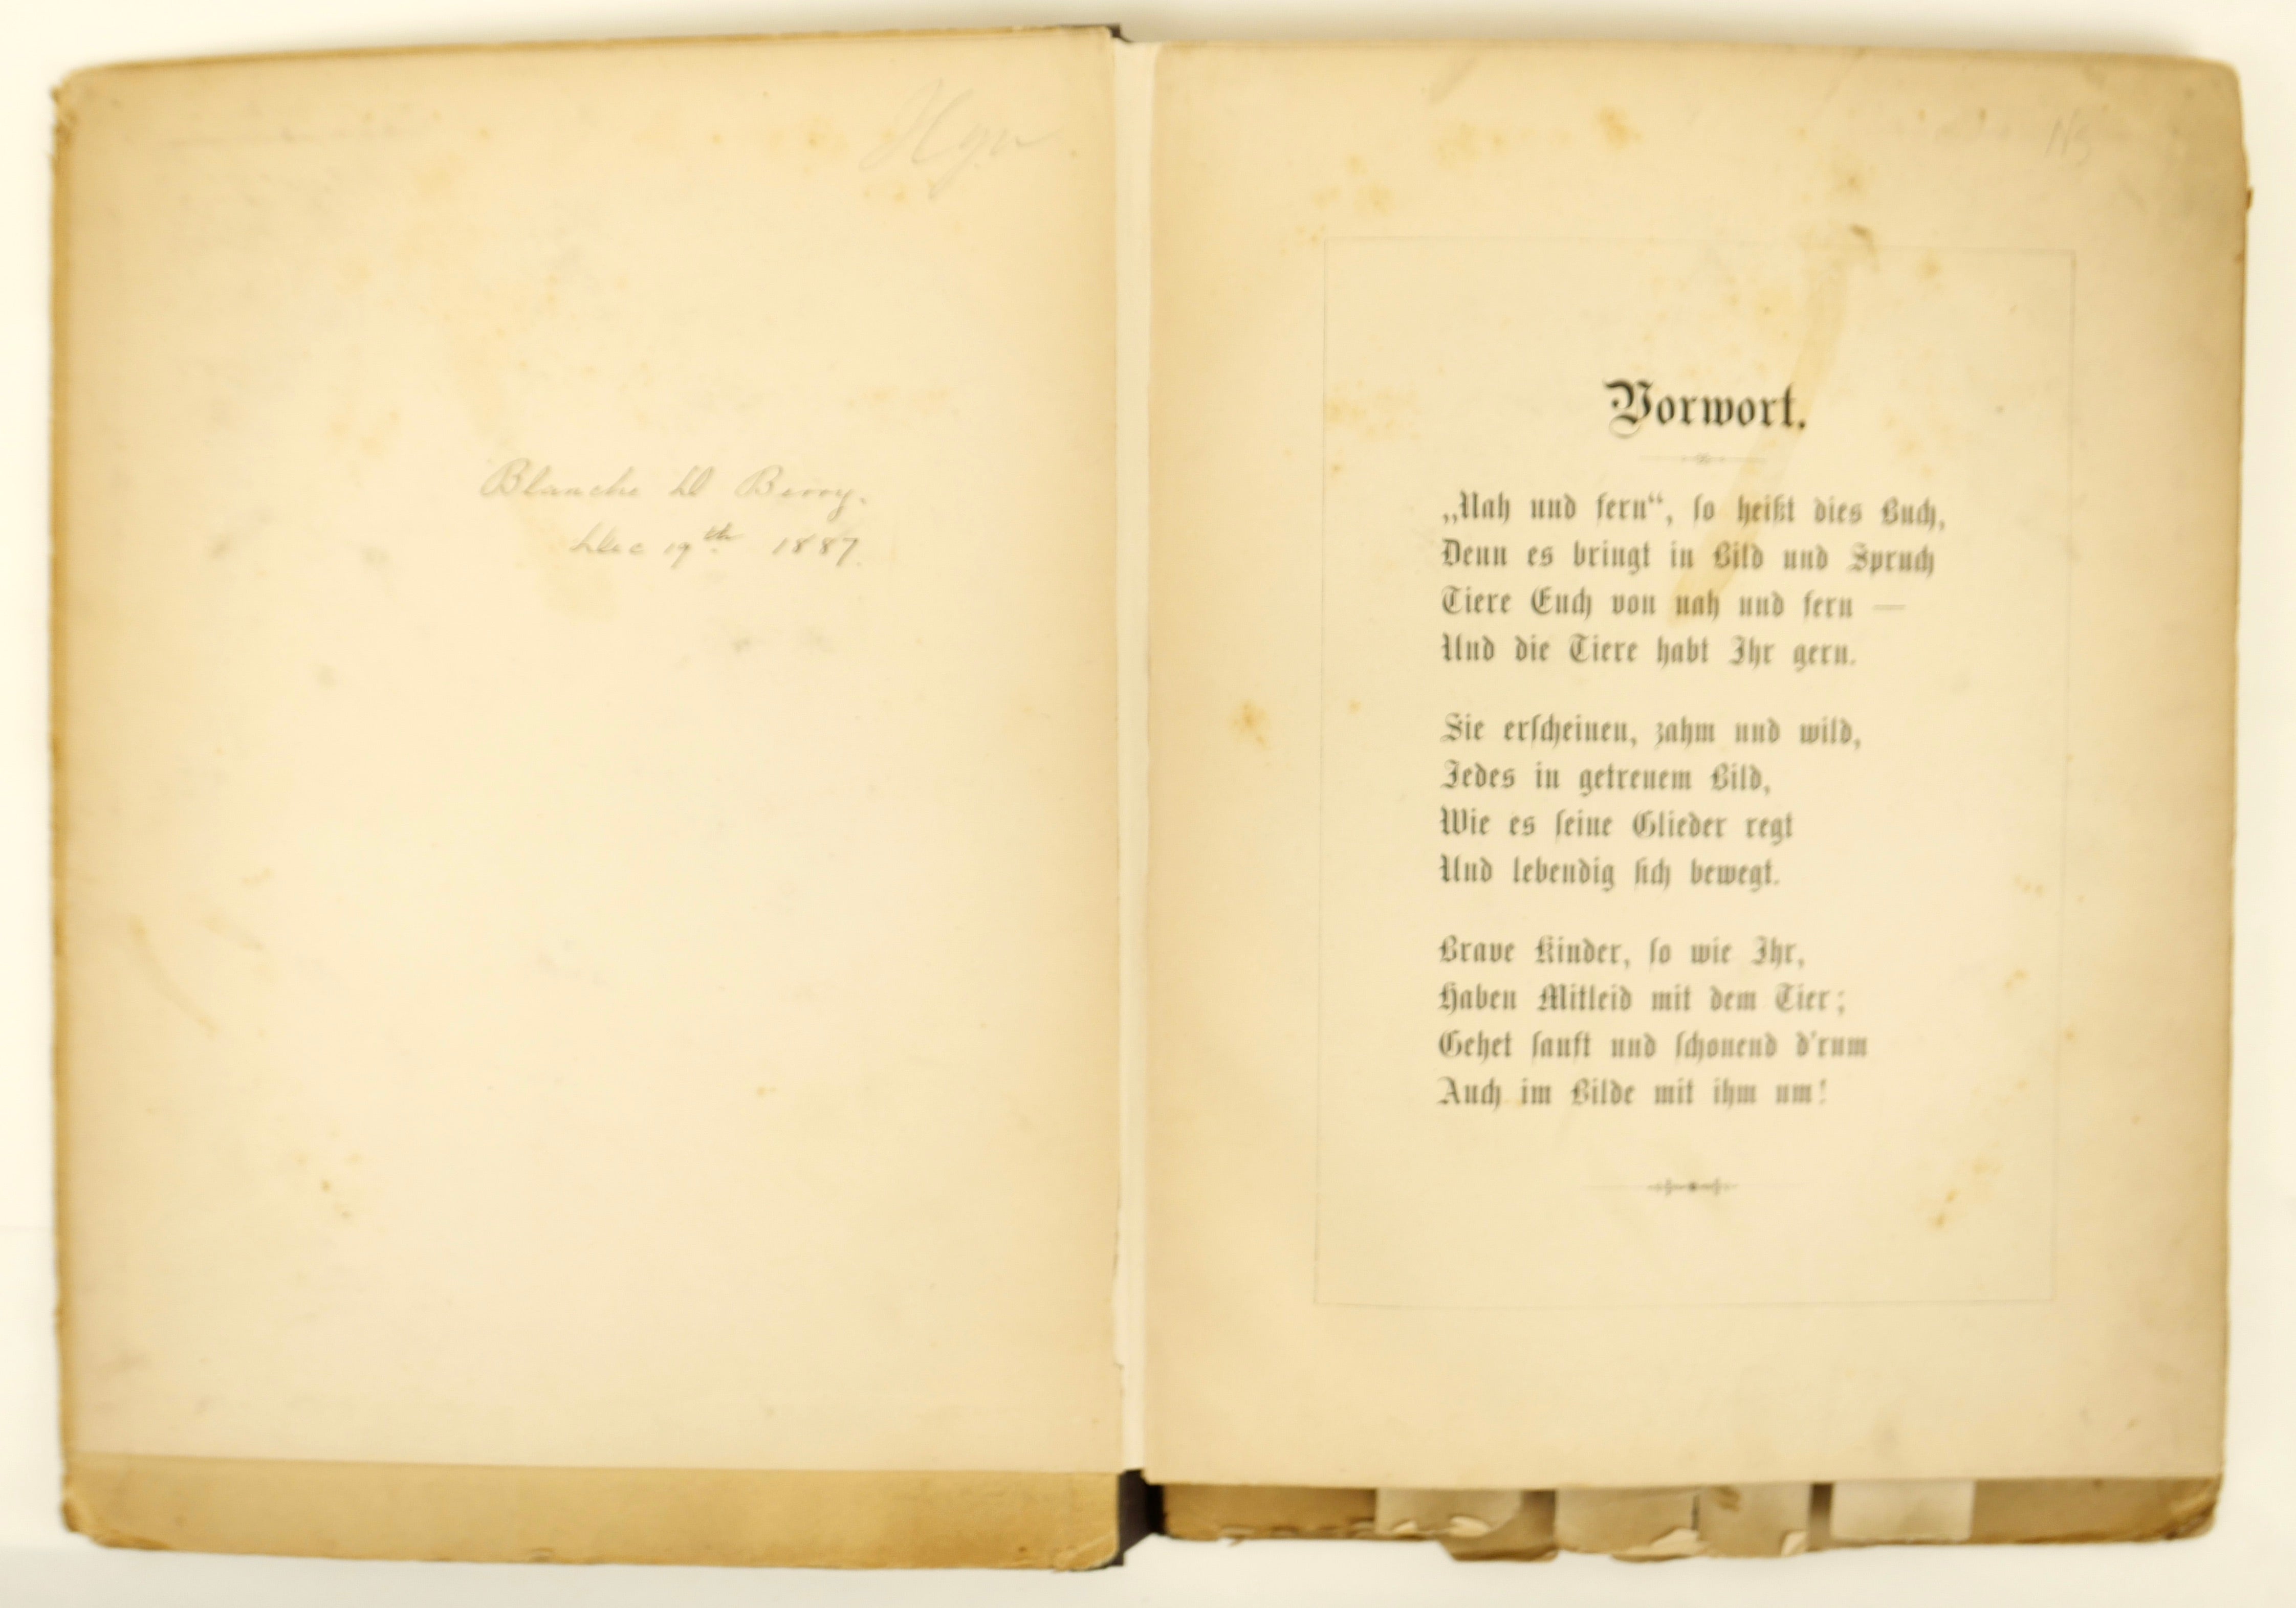 Blanche W Berry.
Dec 19th 1887.
Vorwort.
„Nah und fern“, ſo heißt dies Buch,
Denn es bringt in Bild und Spruch
Tiere Euch von nah und fern —
Und die Tiere habt Ihr gern.
Sie erſcheinen, zahm und wild,
Jedes in getreuem Bild,
Wie es ſeine Glieder regt
Und lebendig ſich bewegt.
Brave Kinder, ſo wie Ihr,
Haben Mitleid mit dem Tier;
Gehet ſanft und ſchonend d'rum
Auch im Bilde mit ihm um!